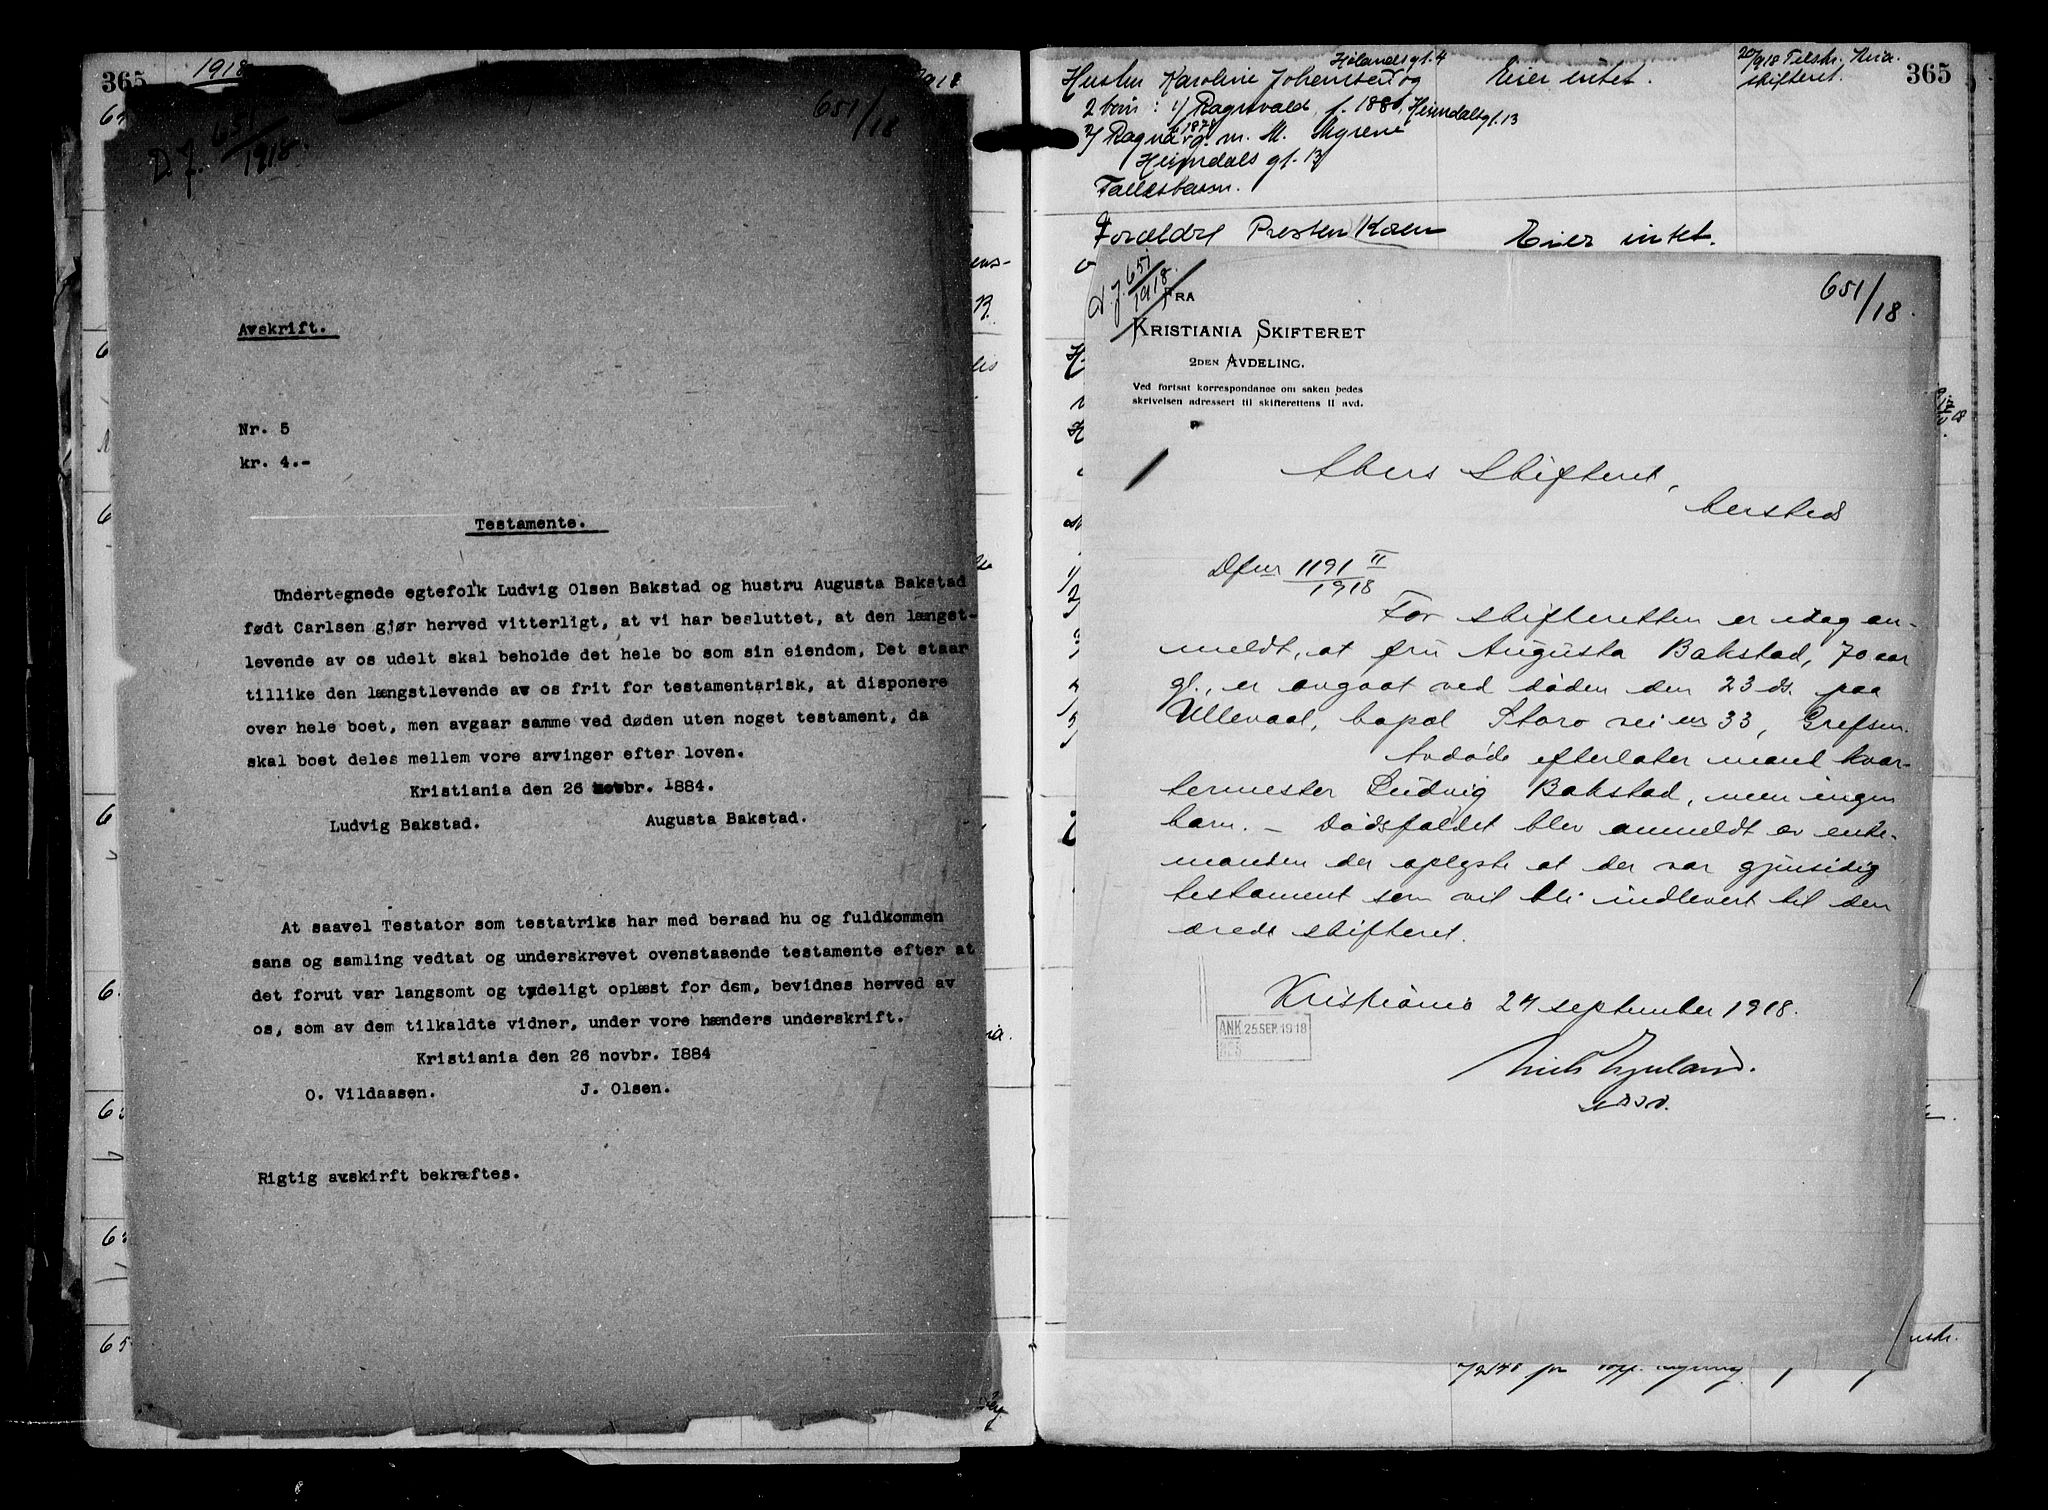 365
1918
1918
D. J. 651/1918.
651/18
Avskrift.
Nr. 5
kr. 4.-
Testamente.
Undertegnede egtefolk Ludvig Olsen Bakstad og hustru Augusta Bakstad
født Carlsen gjør herved vitterligt, at vi har besluttet, at den længst-
levende av os udelt skal beholde det hele bo som sin eiendom. Det staar
tillike den længstlevende av os frit for testamentarisk, at disponere
over hele boet, men avgaar samme ved døden uten noget testament, da
skal boet deles mellem vore arvinger efter loven.
Kristiania den 26 novbr. 1884.
Ludvig Bakstad. Augusta Bakstad.
At saavel Testator som testatriks har med beraad hu og fuldkommen
sans og samling vedtat og underskrevet ovenstaaende testamente efter at
det forut var langsomt og tydeligt oplæst for dem, bevidnes herved av
os, som av dem tilkaldte vidner, under vore hænders underskrift.
Kristiania den 26 novbr. 1884
O. Vildaasen. J. Olsen.
Rigtig avskirft bekræftes.
Hølandsgt. 4
Hustru Karoline Johensted og Eier intet. 20/918 Tilskr. Kria. 365
2 børn: 1/ Ragnvald, f. 1880, Heimdalsgt. 13 skifteret.
2/ Ragna f. 1878 g. m. M. Myrene
Heimdals gt. 13
Fællesbarn.
Forældre Presten Eier intet.
D. J. 651/1918.
651/18.
FRA
KRISTIANIA SKIFTERET
2DEN AVDELING.
Ved fortsat korrespondanse om saken bedes
skrivelsen adressert til skifterettens II avd.
Akers Skifteret,
hersteds
Dfnr 1191 II/1918
For skifteretten er idag an-
meldt, at fru Augusta Bakstad, 70 aar
gl., er avgaat ved døden den 23 ds. paa
Ullevaal, bopæl Storo veien 33, Grefsen.
Avdøde efterlater mand kvar-
termester Ludvig Bakstad, men ingen
barn. – Dødsfaldet blev anmeldt av enke-
manden der oplyste at der var gjensidig
testament som vil bli indlevert til den
ærede skifteret.
Kristiania 24 september 1918.
ANK 25 SEP. 1918